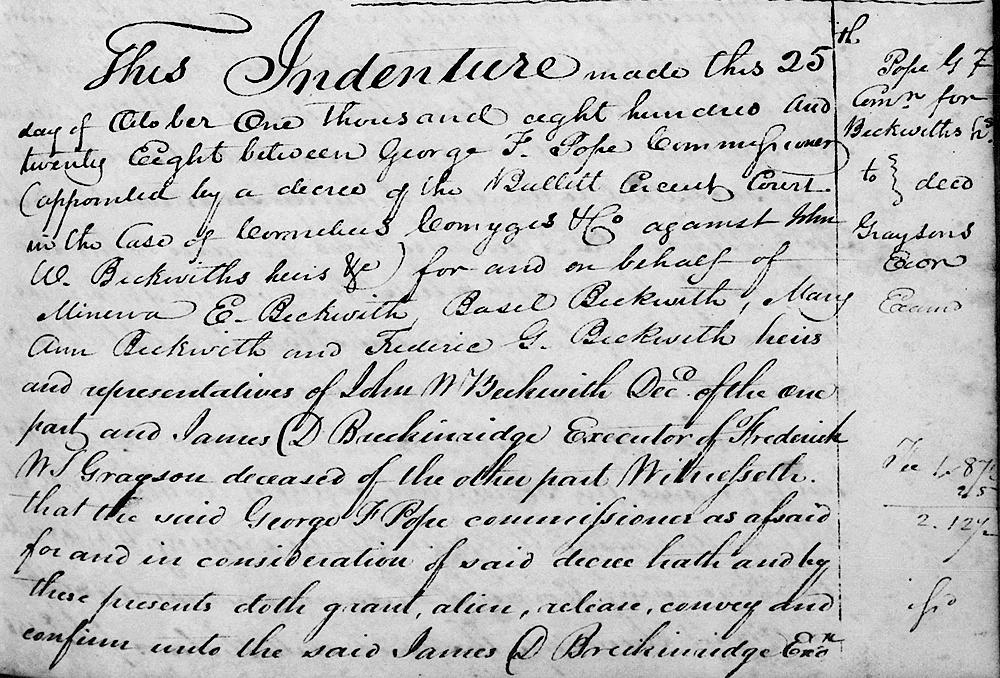 This Indenture made this 25th
day of October One thousand eight hundred and
twenty Eight between George F. Pope Commissioner
(appointed by a decree of the Bullitt Circuit Court
in the Case of Cornelius Comyges & Co against John
W. Beckwiths heirs &c) for and on behalf of
Minerva E. Beckwith, Basel Beckwith, Mary
Ann Beckwith and Frederic G. Beckwith heirs
and representatives of John W Beckwith Decd. of the one
part and James D Breckinridge Executor of Frederick
W S Grayson deceased of the other part Witnesseth.
that the said George F Pope commissioner as afsaid
for and in consideration of said decree hath and by
these presents doth grant, alien, release, convey and
confirm unto the said James D Breckinridge Exr
Pope G F
Comr for
Beckwiths hs
to } deed
Graysons
Exor
Examd
Fee 1.87½
25
2.12½